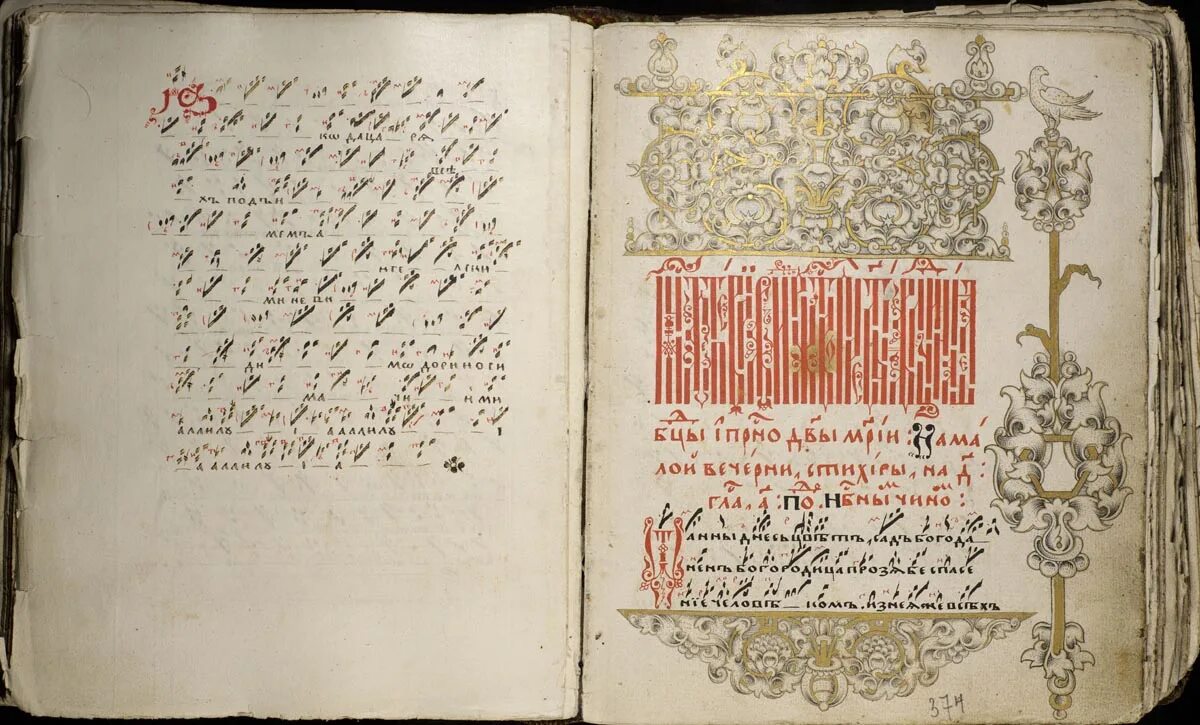 кѡ даца ря
всѣ
хъ подъи
мемъ а
нге лски
ми неви
ди мѡ дориноси
ма чи нми
аллилꙋ і а аллилꙋ і
а аллилꙋ і а
бцы і прⷭ҇но двы мрⷭ҇іи : На ма
лой вечерни, стихіры, на д҃ :
гла, а҃ : По. Нбⷭ҇ны чино :
анны днесь цвѣтъ, садъ богода
ненъ богородица прозѧбе спасе
ніе человѣ комъ. из неѧ же всѣхъ
374